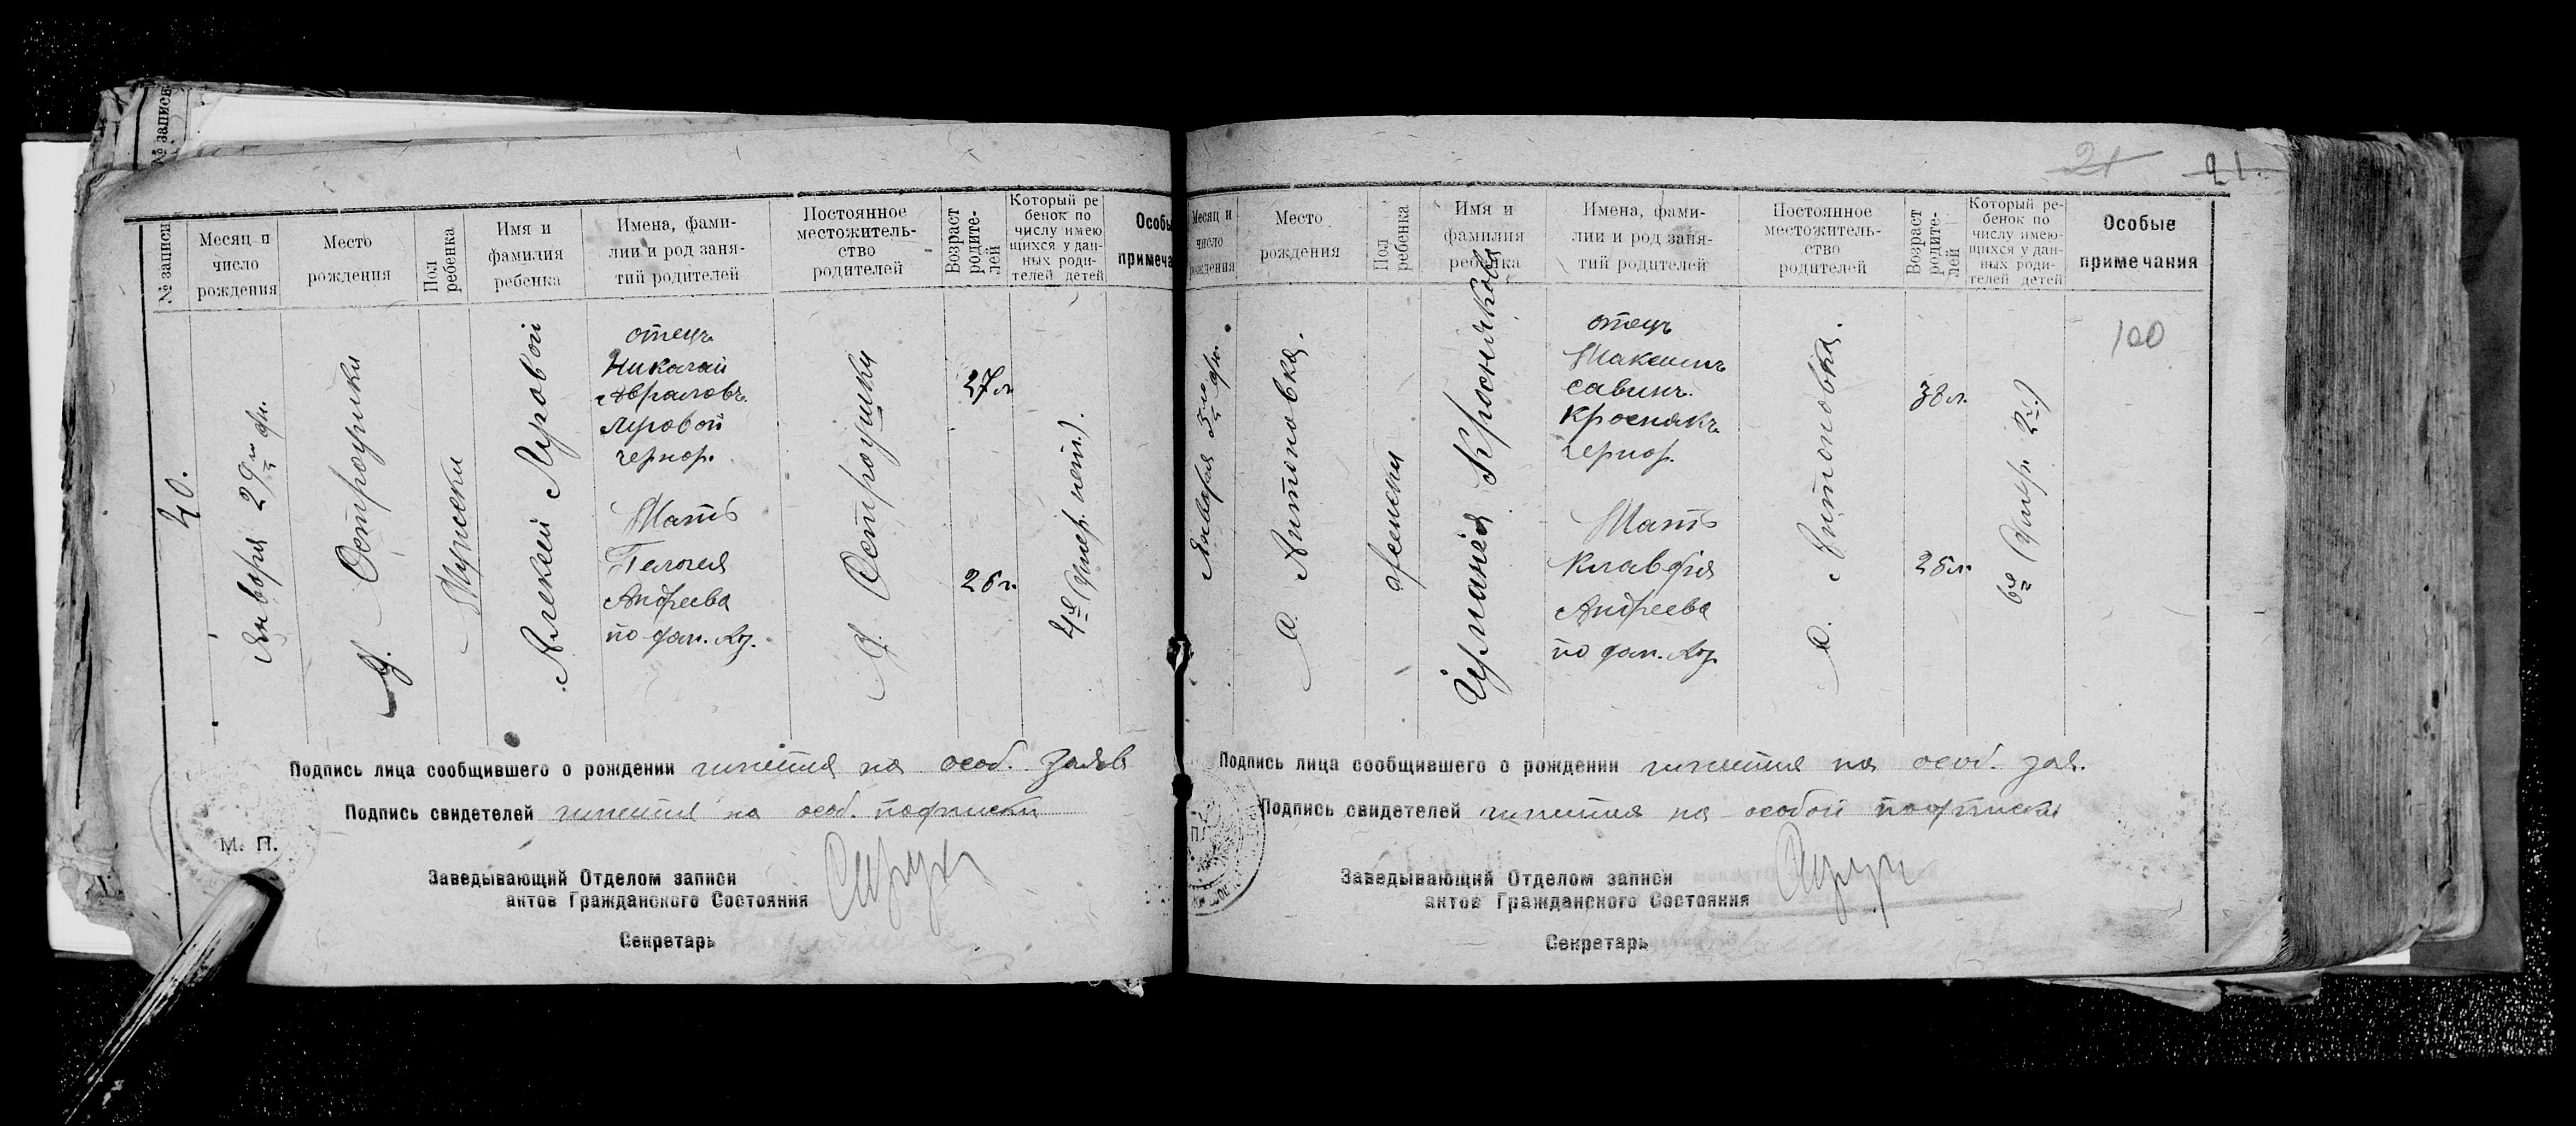 № записи
№ записи
Месяц и
число
рождения
Место
рождения
Пол
ребенка
Имя и
фамилия
ребенка
Имена, фами-
лии и род заня-
тий родителей
Постоянное
местожитель-
ство
родителей
Возраст
родите-
лей
Который ре
бенок по
числу имею
щихся у дан-
ных роди-
телей детей
Особы
примеча
40.
Января 29го дн.
Остроушки
Мужески
Алексей Луговой
отецъ
Николай
Луговой
чернор.
Мать
Андреева
по фам.
Остроушки
27 л
26 г.
4й (умер. нет.).
Подпись лица сообщившего о рождении имеется на особ. заяв
Подпись свидетелей имеется на особ. подписки
М. П.
Заведывающий Отделом записи
актов Гражданского Состояния
Секретарь
21
21.
Месяц и
число
рождения
Место
рождения
Пол
ребенка
Имя и
фамилия
ребенка
Имена, фами-
лии и род заня-
тий родителей
Постоянное
местожитель-
ство
родителей
Возраст
родите-
лей
Который ре-
бенок по
числу имею-
щихся у дан-
ных роди-
телей детей
Особые
примечания
Января дн.
Антоновка.
женски
Кроснякова
отецъ
Максимъ
Савинъ.
Кроснякъ
чернор.
Мать
Клавдія
Андреева
по фам.
Антоновка.
38 л.
6й (умер. 2.)
100
Подпись лица сообщившего о рождении имеется на особ. зая.
Подпись свидетелей имеется на особой подписки
Заведывающий Отделом записи
актов Гражданского Состояния
Секретарь